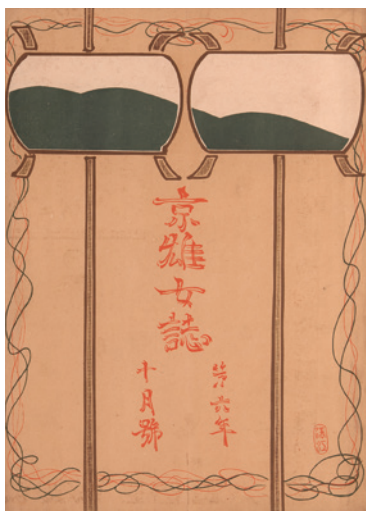 京雄女誌
第六年
十月號